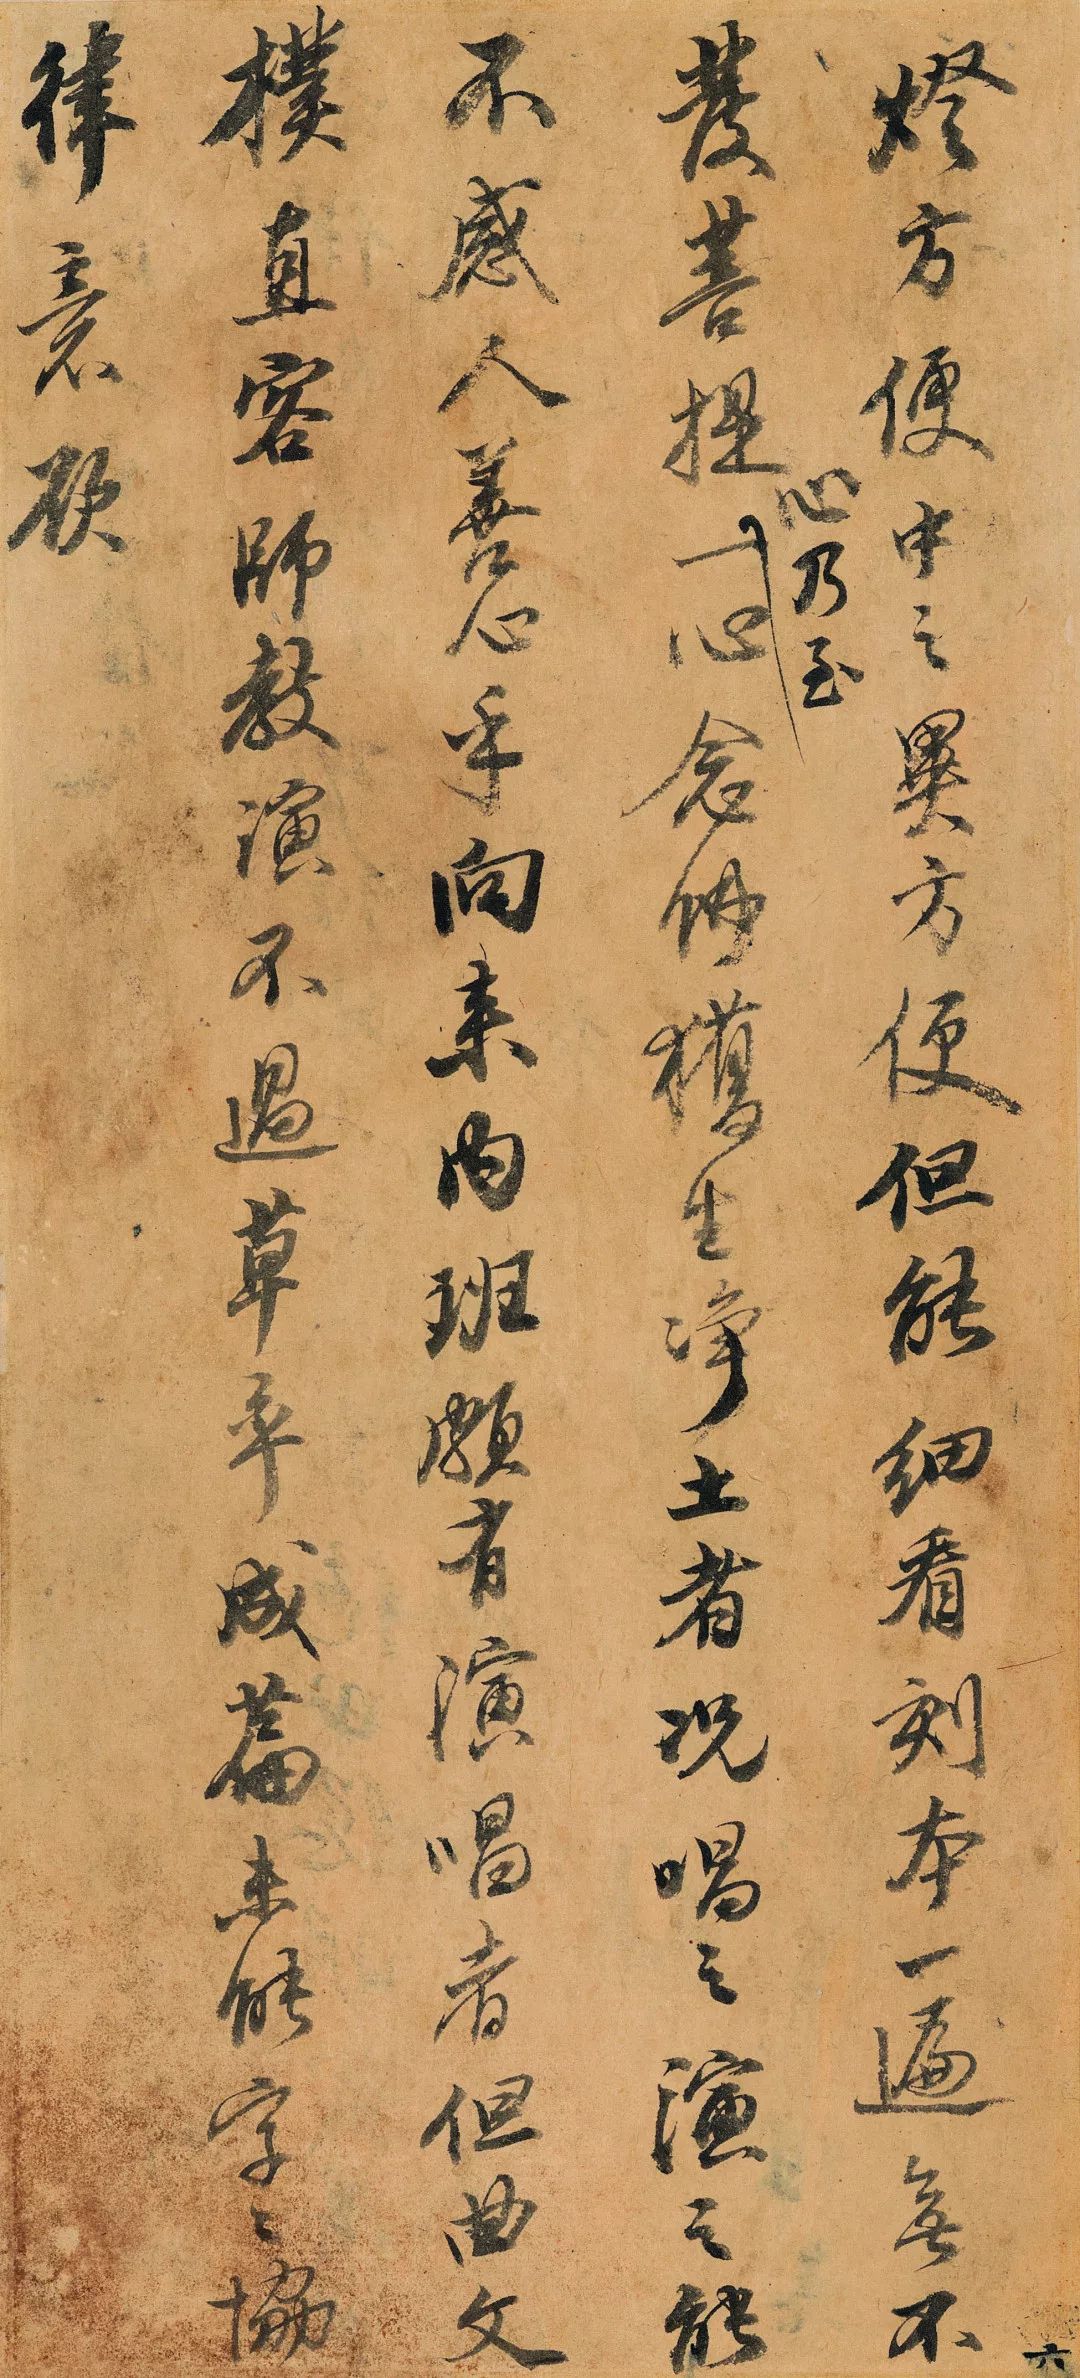 燈方便中之異方便但能細看刻本一遍無不
發菩提心乃至一心念佛獲生淨土者況唱之演之能
不感人善心乎向來內班頗有演唱者但曲文
樸直客師教演不過草率成篇未能字々協
律意欲
六